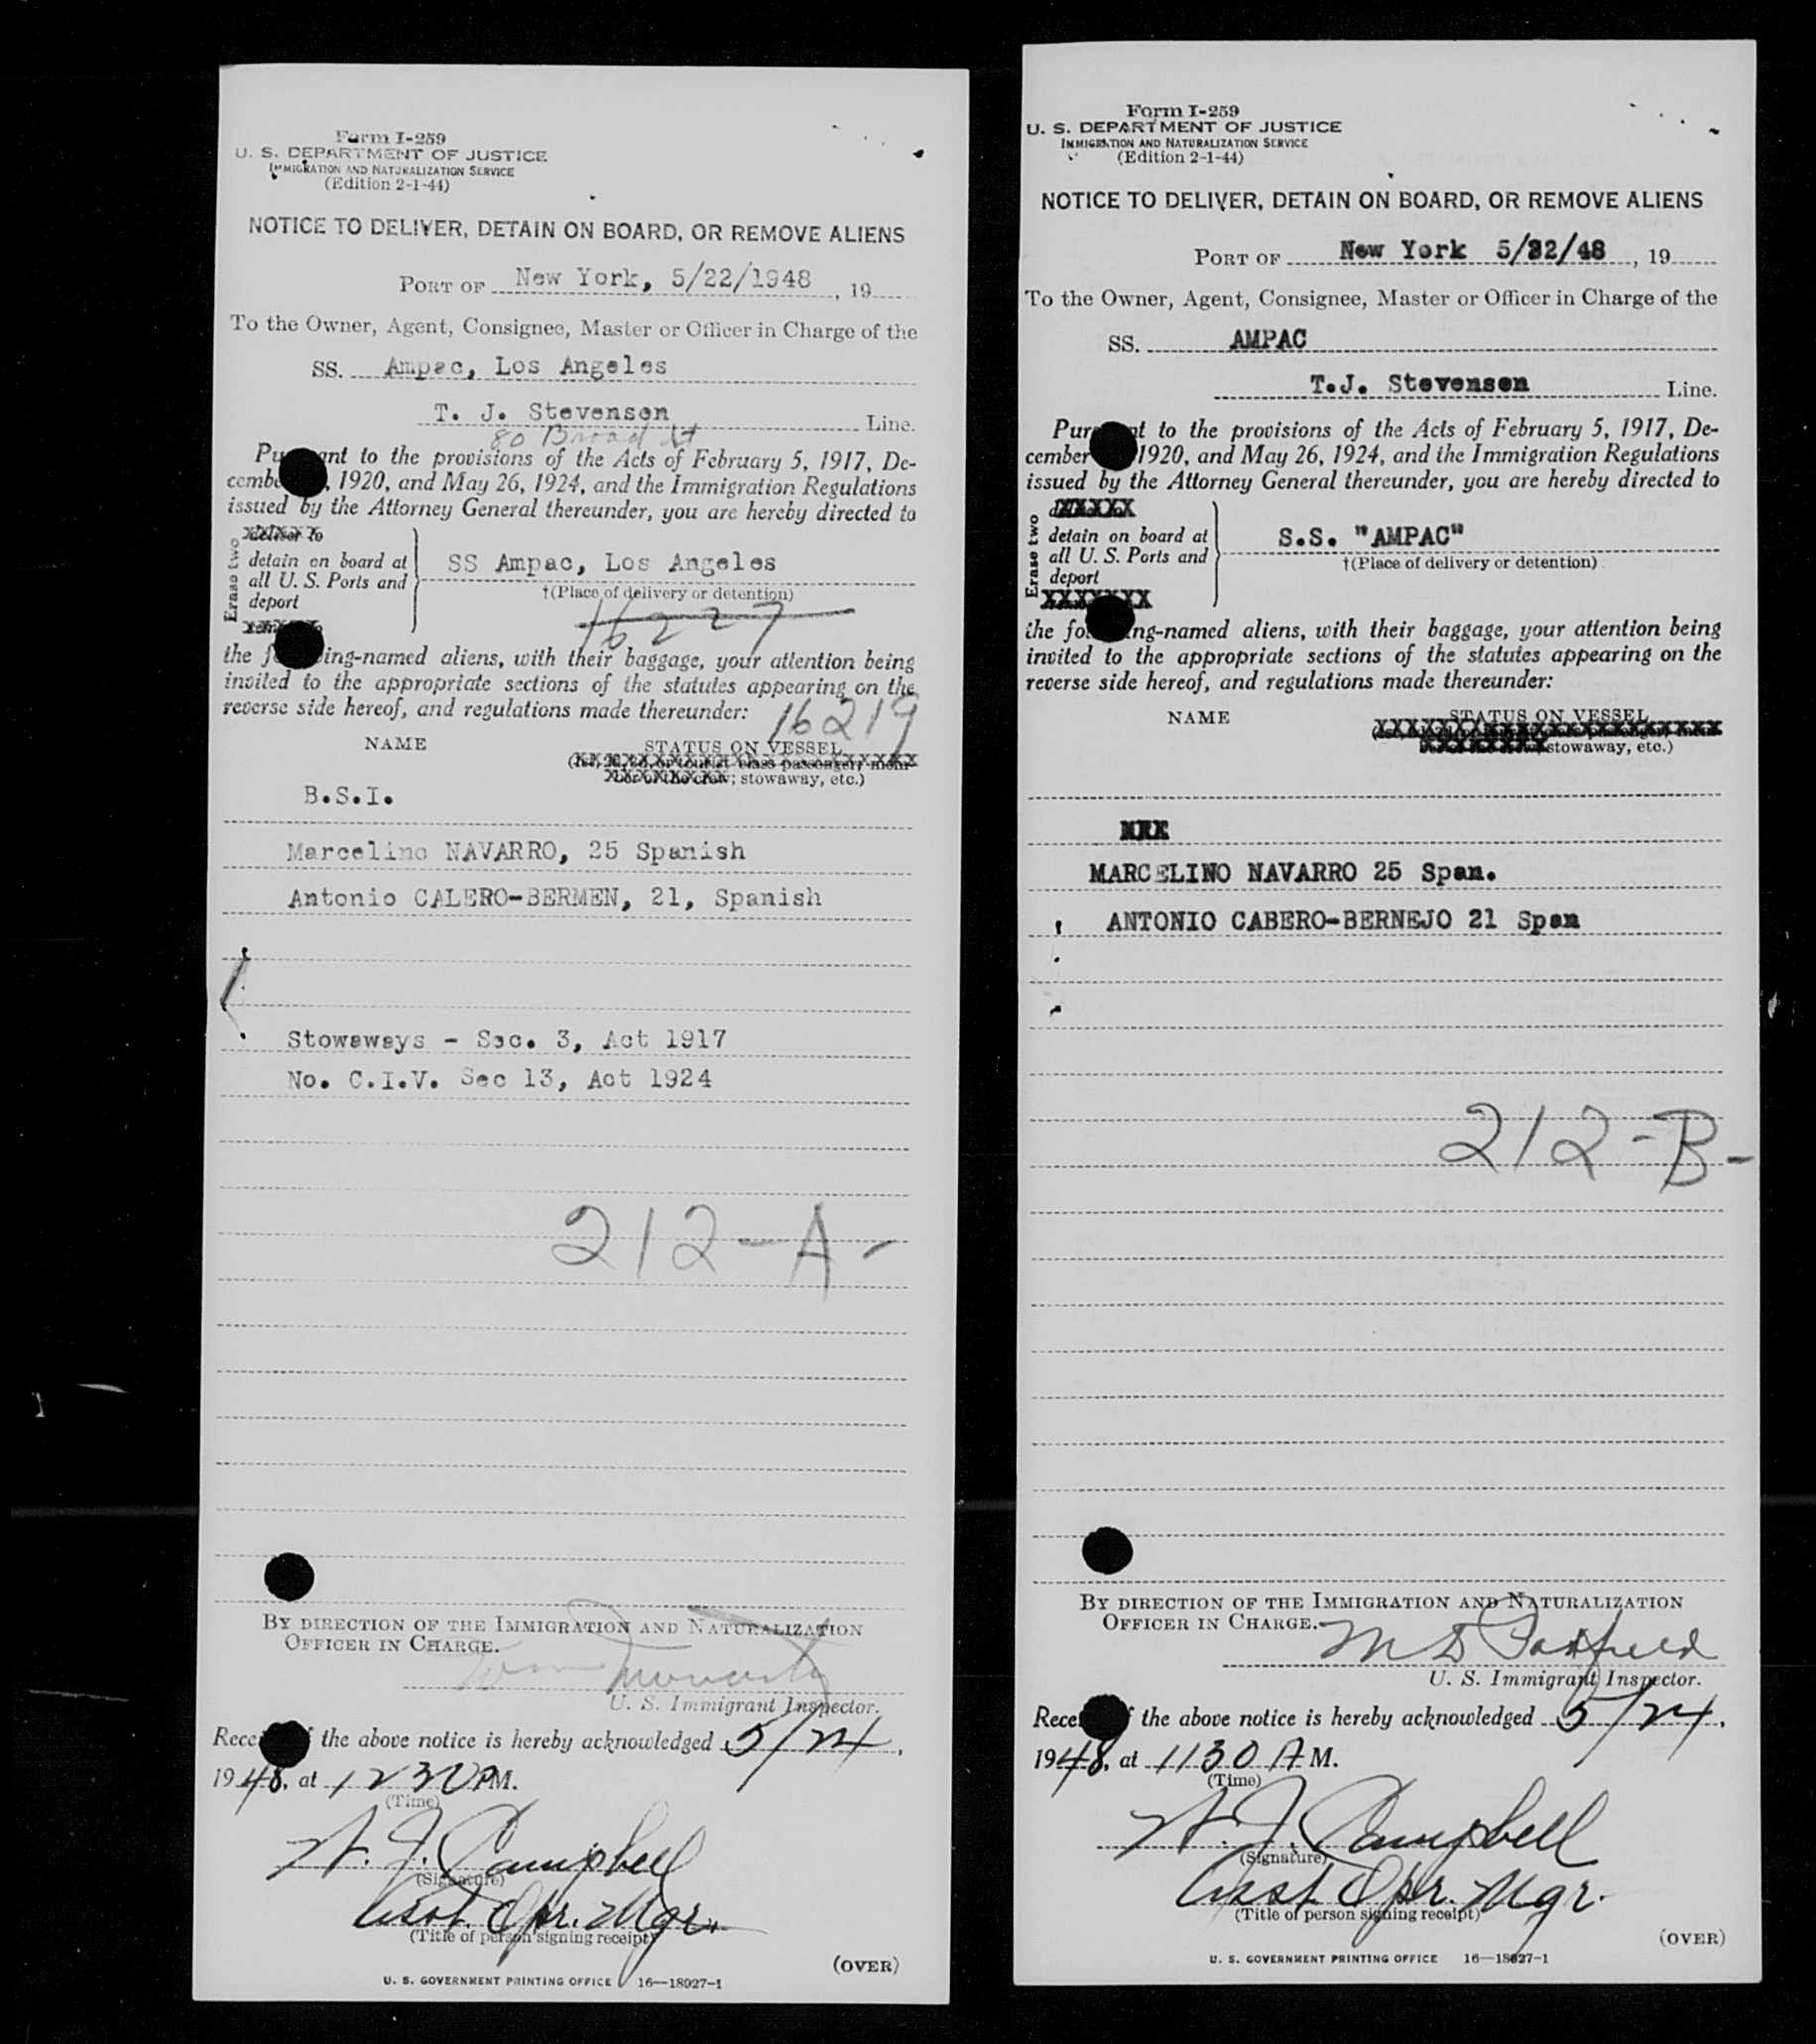 Form I-259
U. S. DEPARTMENT OF JUSTICE
IMMIGRATION AND NATURALIZATION SERVICE
(Edition 2-1-44)
NOTICE TO DELIVER, DETAIN ON BOARD, OR REMOVE ALIENS
PORT OF New York, 5/22/1948, 19
To the Owner, Agent, Consignee, Master or Officer in Charge of the
SS. Ampac, Los Angeles
T. J. Stevenson Line.
80 Broad St
Pu ant to the provisions of the Acts of February 5, 1917, De-
cembe , 1920, and May 26, 1924, and the Immigration Regulations
issued by the Attorney General thereunder, you are hereby directed to
Erase two
deliver to
detain on board at
all U. S. Ports and
deport
SS Ampac, Los Angeles
†(Place of delivery or detention)
16227
the f ing-named aliens, with their baggage, your attention being
invited to the appropriate sections of the statutes appearing on the
reverse side hereof, and regulations made thereunder:
16219
NAME STATUS ON VESSEL
(1st, 2d, 3d, or tourist class passenger, mem-
ber of the crew; stowaway, etc.)
B.S.I.
Marcelino NAVARRO, 25 Spanish
Antonio CALERO-BERMEN, 21, Spanish
Stowaways - Sec. 3, Act 1917
No. C.I.V. Sec 13, Act 1924
212-A-
BY DIRECTION OF THE IMMIGRATION AND NATURALIZATION
OFFICER IN CHARGE.
U. S. Immigrant Inspector.
Rece f the above notice is hereby acknowledged 5/24,
1948, at 1230 PM.
(Time)
W. J. Campbell
(Signature)
Asst. Opr. Mgr.
(Title of person signing receipt)
(OVER)
U. S. GOVERNMENT PRINTING OFFICE 16—18927-1
Form I-259
U. S. DEPARTMENT OF JUSTICE
IMMIGRATION AND NATURALIZATION SERVICE
(Edition 2-1-44)
NOTICE TO DELIVER, DETAIN ON BOARD, OR REMOVE ALIENS
PORT OF New York 5/22/48, 19
To the Owner, Agent, Consignee, Master or Officer in Charge of the
SS. AMPAC
T.J. Stevenson Line.
Pur nt to the provisions of the Acts of February 5, 1917, De-
cember 1920, and May 26, 1924, and the Immigration Regulations
issued by the Attorney General thereunder, you are hereby directed to
Erase two
detain on board at
all U. S. Ports and
deport
S.S. "AMPAC"
†(Place of delivery or detention)
the fo ng-named aliens, with their baggage, your attention being
invited to the appropriate sections of the statutes appearing on the
reverse side hereof, and regulations made thereunder:
NAME STATUS ON VESSEL
stowaway, etc.)
MARCELINO NAVARRO 25 Span.
ANTONIO CABERO-BERNEJO 21 Span
212-B-
BY DIRECTION OF THE IMMIGRATION AND NATURALIZATION
OFFICER IN CHARGE.
U. S. Immigrant Inspector.
Rece f the above notice is hereby acknowledged 5/24,
1948, at 1130 AM.
(Time)
W. J. Campbell
(Signature)
Asst Opr. Mgr.
(Title of person signing receipt)
(OVER)
U. S. GOVERNMENT PRINTING OFFICE 16—18927-1